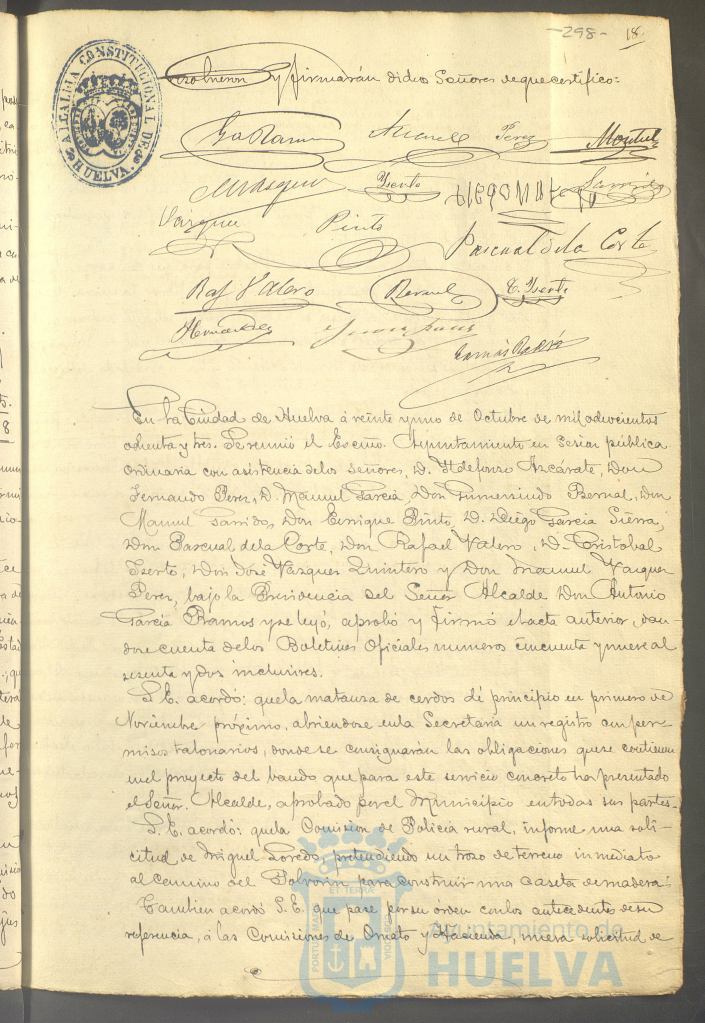 -298-
18
ALCALDIA CONSTITUCIONAL DE HUELVA.
y firmarán dichos Señores de que certifico:
Azcarate Perez Montiel
Vazquez Yserte
Vazquez Pinto Pascual de la Corte
Raf Valero Bernal C. Yserte
Hernandez
En la Ciudad de Huelva á veinte y uno de Octubre de mil ochocientos
ochenta y tres. Se reunió el Escmo. Ayuntamiento en sesion pública
ordinaria con asistencia de los señores, D. Ildefonso Azcárate, Don
Fernando Perez, D. Manuel García, Don Gumersindo Bernal, Don
Manuel Garrido, Don Enrique Pinto, D. Diego García Sierra,
Don Pascual de la Corte, Don Rafael Valero, D. Cristobal
Yserte, Don José Vazquez Quintero y Don Manuel Vazquez
Perez, bajo la Presidencia del Señor Alcalde Don Antonio
García Ramos y se leyó, aprobó y firmó el acta anterior, dan-
dose cuenta de los Boletines Oficiales numeros cincuenta y nueve al
sesenta y dos inclusives.
S. E. acordó: que la matanza de cerdos dé principio en primero de
Noviembre próximo, abriendose en la Secretaria un registro con per-
misos talonarios, donde se consignarán las obligaciones que se contienen
en el proyecto del bando que para este servicio concreto ha presentado
el Señor Alcalde, aprobado por el Municipio en todas sus partes.
S. E. acordó: que la Comision de Policía rural, informe una soli-
citud de Miguel Loredo, pretendiendo un trozo de terreno inmediato
al camino del Polvorin para construir una caseta de madera.
Tambien acordó S. E. que pase por su órden con los antecedentes de su
referencia, á las Comisiones de Ornato y Hacienda, nueva solicitud de
PORTUS MARIS ET TERRÆ CUSTODIA
Ayuntamiento de
HUELVA